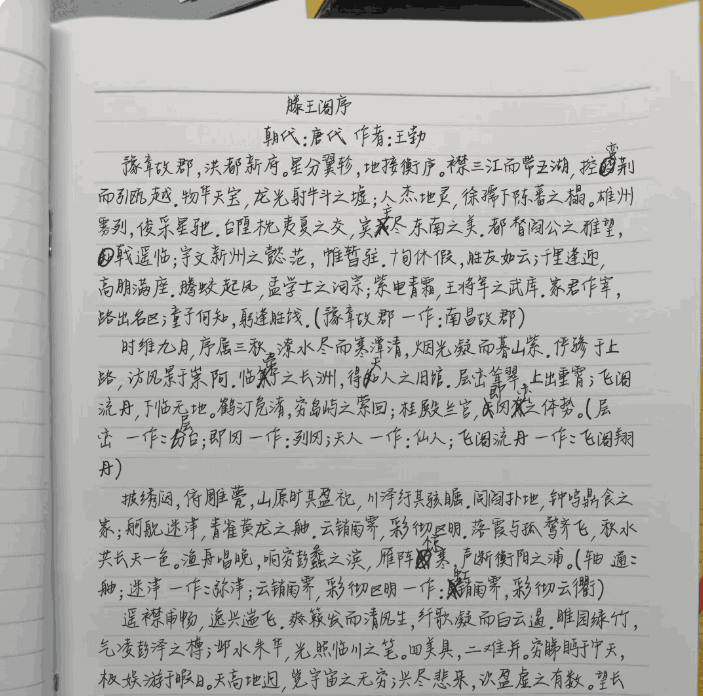 滕王阁序
朝代:唐代 作者:王勃
豫章故郡,洪都新府。星分翼轸,地接衡庐。襟三江而带五湖,控蛮荆
而引瓯越。物华天宝,龙光射牛斗之墟;人杰地灵,徐孺下陈蕃之榻。雄州
雾列,俊采星驰。台隍枕夷夏之交,宾主尽东南之美。都督阎公之雅望,
戟遥临;宇文新州之懿范,帷暂驻。十旬休假,胜友如云;千里逢迎,
高朋满座。腾蛟起凤,孟学士之词宗;紫电青霜,王将军之武库。家君作宰,
路出名区;童子何知,躬逢胜饯。(豫章故郡 一作:南昌故郡)
时维九月,序属三秋。潦水尽而寒潭清,烟光凝而暮山紫。俨骖于上
路,访风景于崇阿。临帝子之长洲,得天人之旧馆。层峦耸翠,上出重霄;飞阁
流丹,下临无地。鹤汀凫渚,穷岛屿之萦回;桂殿兰宫,即冈峦之体势。(层
峦 一作:层台;即冈 一作:列冈;天人 一作:仙人;飞阁流丹 一作:飞阁翔
丹)
披绣闼,俯雕甍,山原旷其盈视,川泽纡其骇瞩。闾阎扑地,钟鸣鼎食之
家;舸舰迷津,青雀黄龙之舳。云销雨霁,彩彻区明。落霞与孤鹜齐飞,秋水
共长天一色。渔舟唱晚,响穷彭蠡之滨,雁阵惊寒,声断衡阳之浦。(轴 通:
舳;迷津 一作:弥津;云销雨霁,彩彻区明 一作:虹销雨霁,彩彻云衢)
遥襟甫畅,逸兴遄飞。爽籁发而清风生,纤歌凝而白云遏。睢园绿竹,
气凌彭泽之樽;邺水朱华,光照临川之笔。四美具,二难并。穷睇眄于中天,
极娱游于暇日。天高地迥,觉宇宙之无穷;兴尽悲来,识盈虚之有数。望长